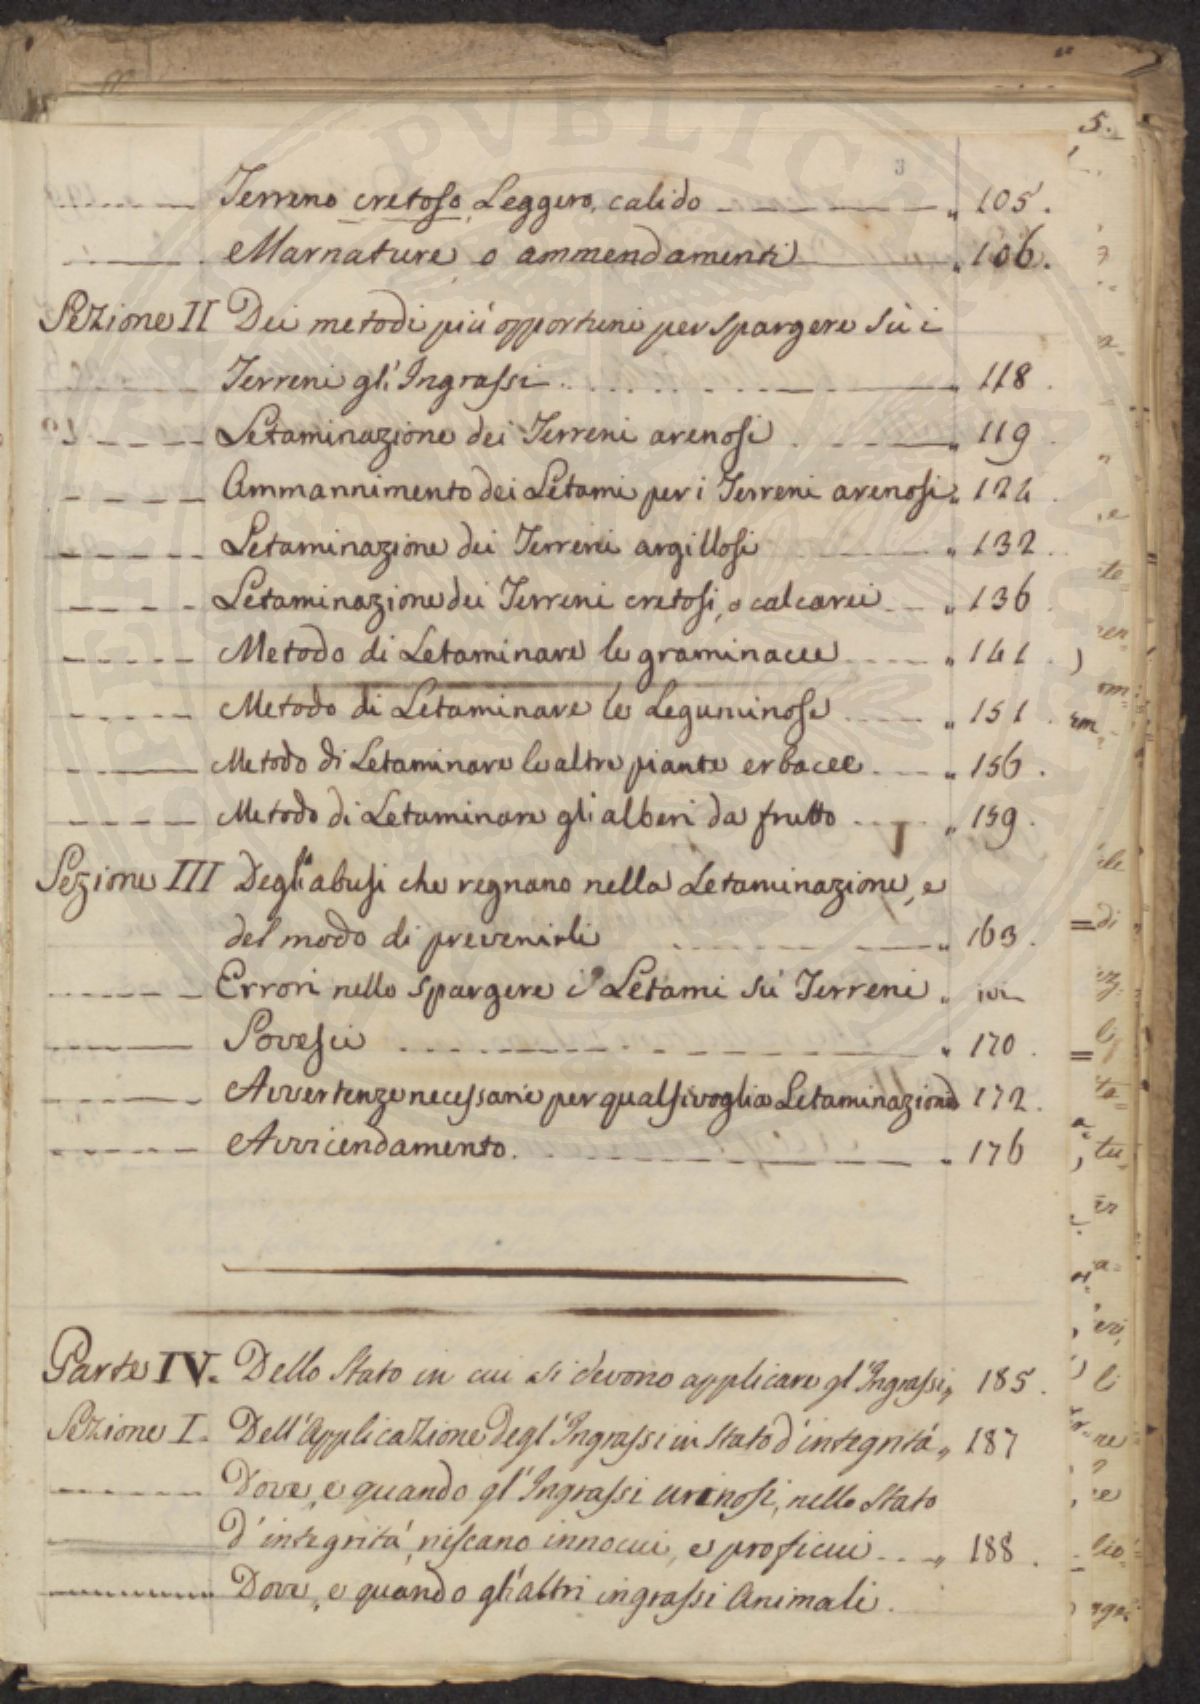 5.
3
Terreno cretoso, Leggero, calido „ 105.
Marnature, o ammendamenti „ 106.
Sezione II Dei metodi più opportuni per spargere sù i
Terreni gl'Ingrassi „ 118.
Letaminazione dei Terreni arenosi „ 119.
Ammannimento dei Letami per i Terreni arenosi „ 124.
Letaminazione dei Terreni argillosi „ 132.
Letaminazione dei Terreni cretosi, o calcarei „ 136.
Metodo di Letaminare le graminacee „ 141.
Metodo di Letaminare le Leguminose „ 151.
Metodo di Letaminare le altre piante erbacee „ 156.
Metodo di Letaminare gli alberi da frutto „ 159.
Sezione III Degli abusi che regnano nella Letaminazione, e
del modo di prevenirli „ 163.
Errori nello spargere i Letami sù Terreni „ ivi
Sovesci „ 170.
Avvertenze necessarie per qualsivoglia Letaminazione 172.
Avvicendamento. „ 176
Parte IV. Dello Stato in cui si devono applicare gl'Ingrassi „ 185.
Sezione I. Dell'Applicazione degl'Ingrassi in Stato d'integrità „ 187
Dove, e quando gl'Ingrassi urinosi, nello Stato
d'integrità, riescano innocui, e proficui „ 188.
Dove, e quando gli altri ingrassi Animali.